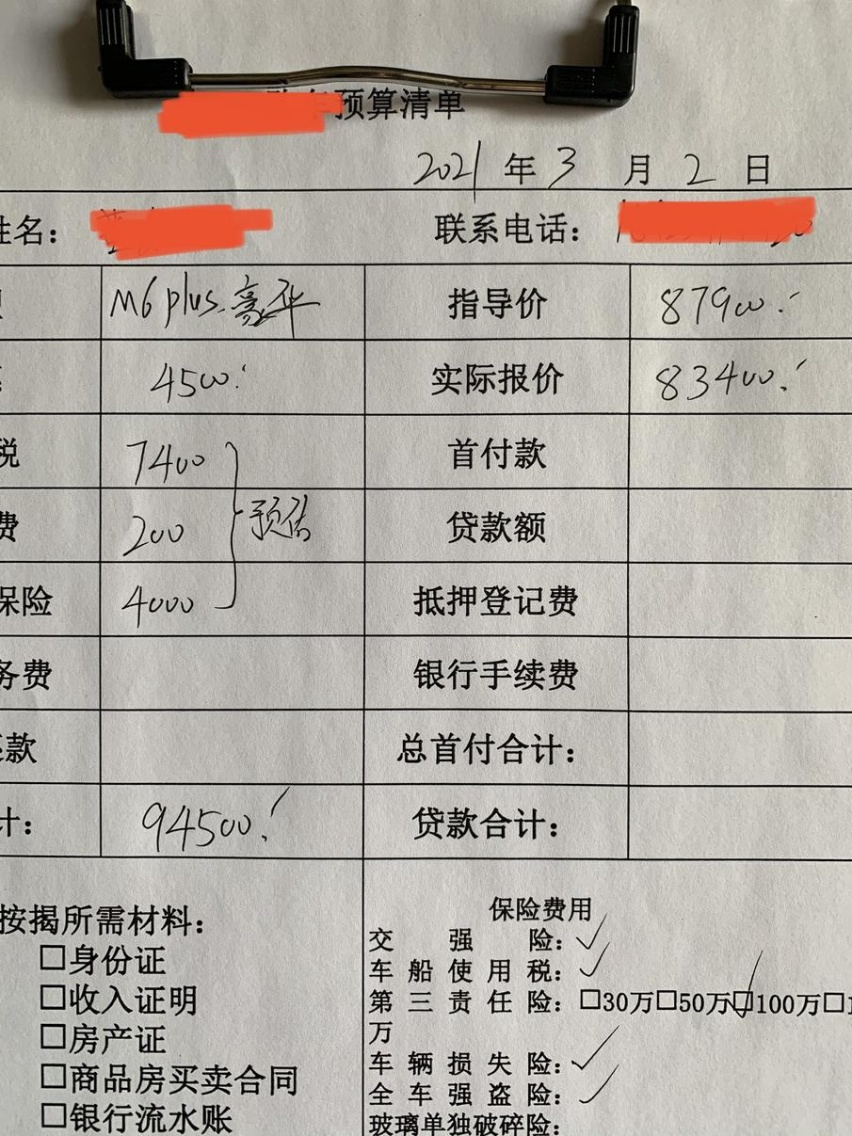 预算清单
2021年3月2日
姓名： 联系电话：
M6 plus. 豪华 指导价 87900.
4500. 实际报价 83400.
税 7400 首付款
费 200 预估 贷款额
保险 4000 抵押登记费
务费 银行手续费
款 总首付合计：
计： 94500. 贷款合计：
按揭所需材料：
□身份证
□收入证明
□房产证
□商品房买卖合同
□银行流水账
保险费用
交强险：✓
车船使用税：✓
第三责任险：□30万□50万☑100万□1
万
车辆损失险：✓
全车强盗险：✓
玻璃单独破碎险：